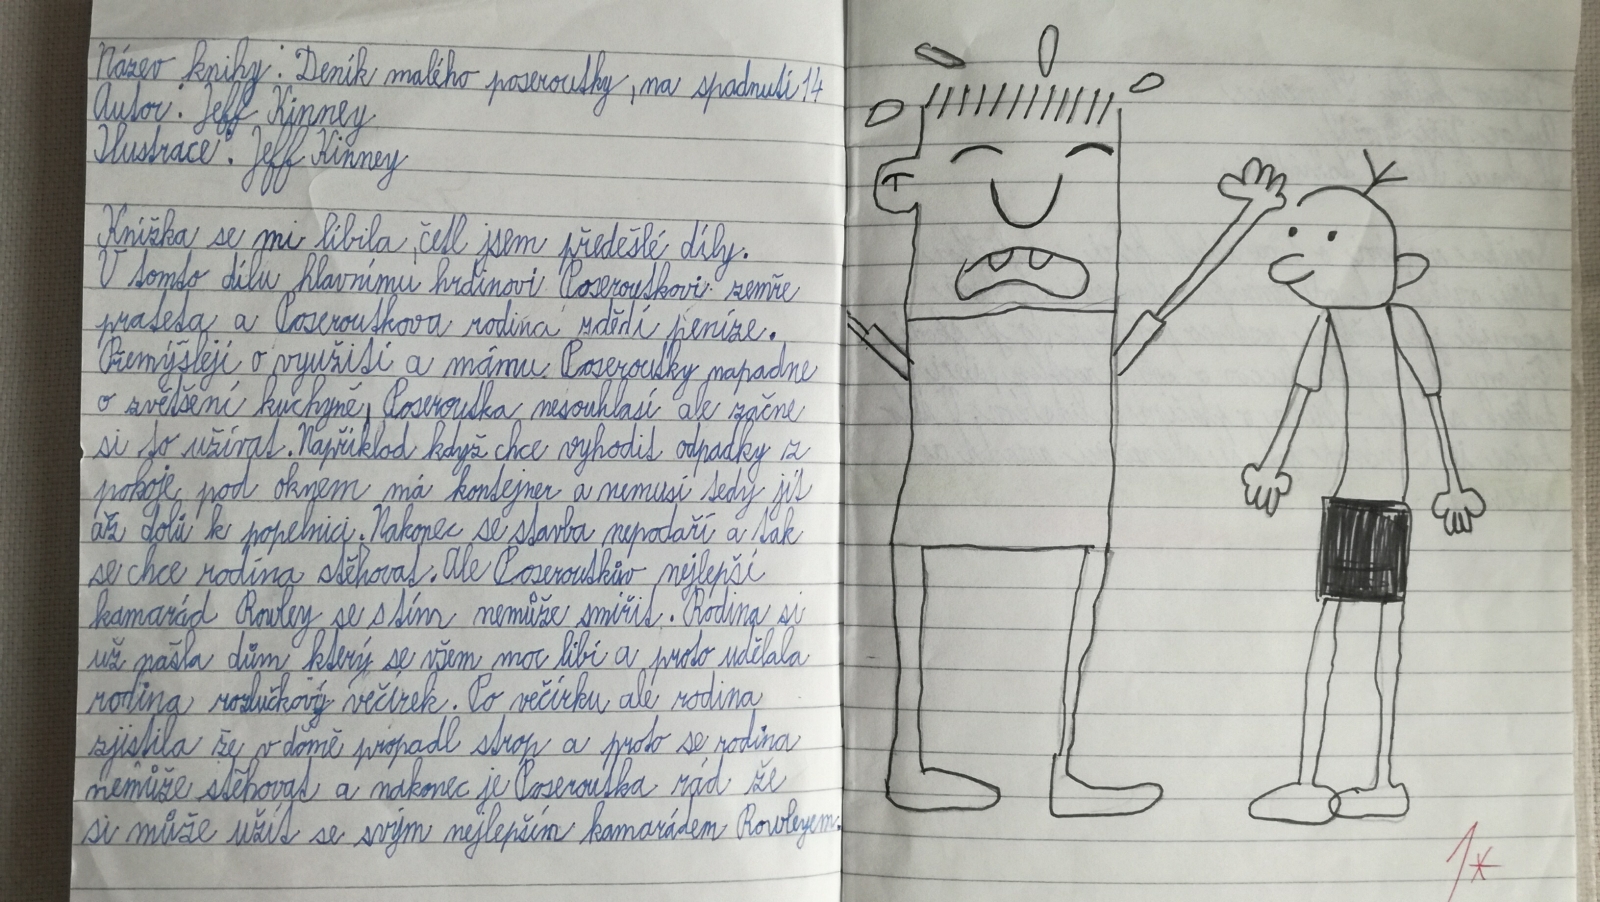 Název knihy: Deník malého poseroutky, na spadnutí 14
Autor: Jeff Kinney
Ilustrace: Jeff Kinney
Knížka se mi líbila, četl jsem předešlé díly.
V tomto dílu hlavnímu hrdinovi Poseroutkovi zemře
prateta a Poseroutkova rodina zdědí peníze.
Přemýšlejí o využití a mámu Poseroutky napadne
o zvětšení kuchyně, Poseroutka nesouhlasí ale začne
si to užívat. Například když chce vyhodit odpadky z
pokoje, pod oknem má kontejner a nemusí tedy jít
až dolů k popelnici. Nakonec se stavba nepodaří a tak
se chce rodina stěhovat. Ale Poseroutkův nejlepší
kamarád Rowley se s tím nemůže smířit. Rodina si
už našla dům který se všem moc líbí a proto udělala
rodina rozlučkový večírek. Po večírku ale rodina
zjistila že v domě propadl strop a proto se rodina
nemůže stěhovat a nakonec je Poseroutka rád že
si může užít se svým nejlepším kamarádem Rowleyem.
1*